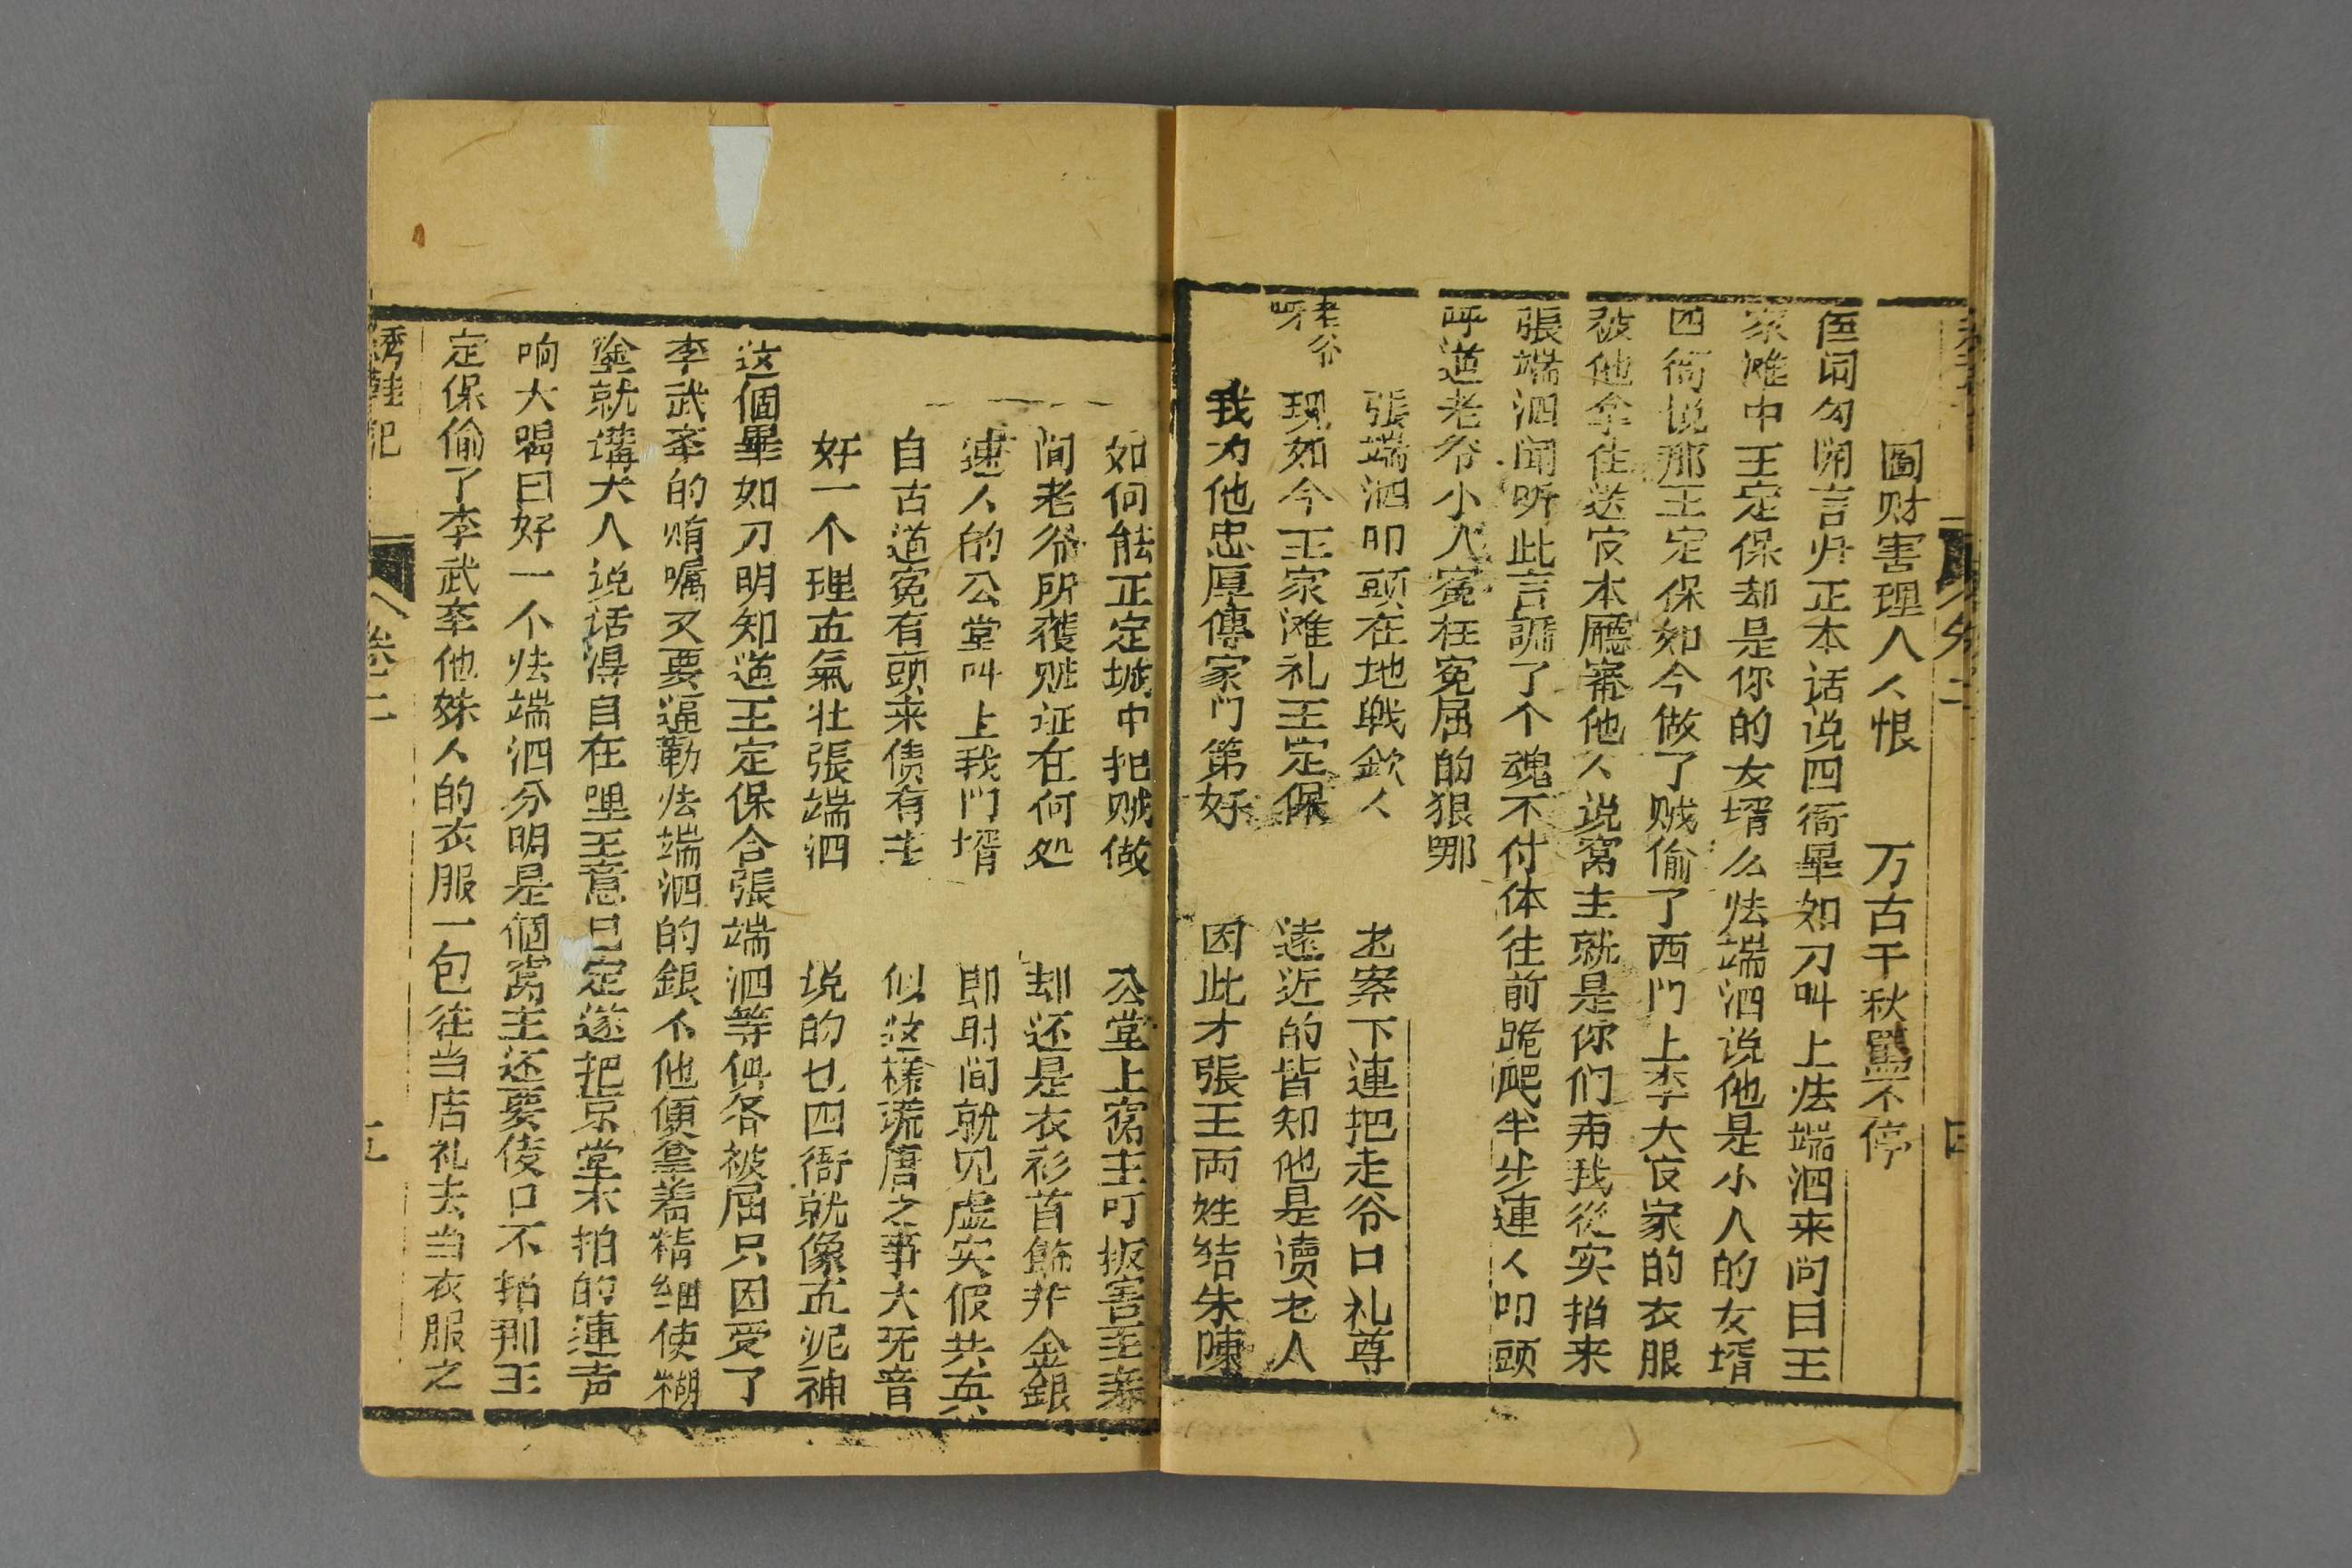 圖财害理人人恨 万古千秋罵不停
侄词勾開言归正本话说四衙畢如刀叫上怯端泗来问曰王
家滩中王定保却是你的女壻么怯端泗说他是小人的女壻
四衙说那王定保如今做了贼偷了西门上李大官家的衣服
被他拿住送官本廳審他他说窝主就是你们甭我從实招来
張端泗闻听此言諕了个魂不付体往前跪爬半步連人叩頭
呼道老爷小人寃枉寃屈的狠哪
張端泗叩頭在地戰欽人 老案下連把走爷口礼尊
老爷呀 现如今王家滩礼王定保 遠近的皆知他是读老人
我为他忠厚傳家门第好 因此才張王両姓结朱陳
如何能正定城中把贼做 公堂上窩主叮扳害至泰
间老爷所獲贓证在何处 却还是衣衫首飾并金銀
速人的公堂叫上我门壻 即时间就见虚实假共真
自古道寃有頭来债有主 似这樣謊唐之事大死音
好一个理直氣壮張端泗 说的乜四衙就像直泥神
这個畢如刀明知道王定保合張端泗等俱各被屈只因受了
李武举的贿嘱又要逼勒怯端泗的銀不他便拿着精細使糊
塗就講大人说话得自在哩主意已定遂把京堂木拍的連声
响大喝曰好一个怯端泗分明是個窩主还要傻口不招那王
定保偷了李武举他姝人的衣服一包往当店礼去当衣服之
綉鞋记 卷二 五